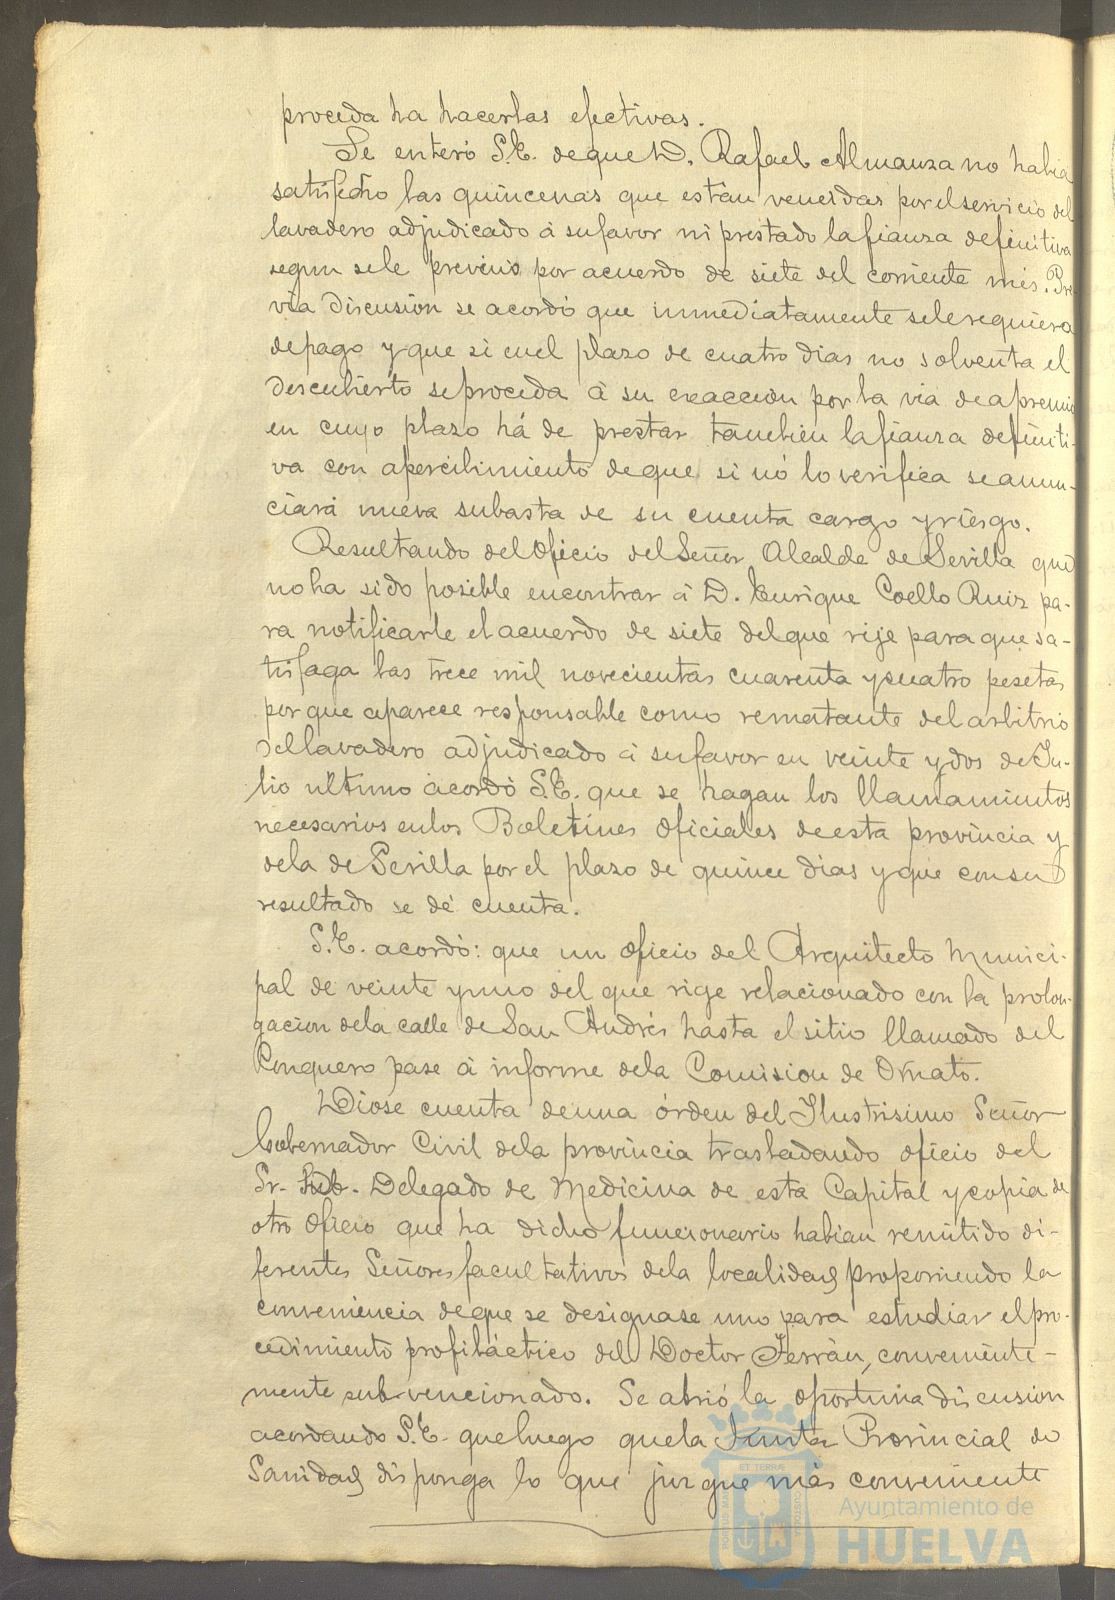 proceda ha hacerlas efectivas.
Se enteró S.E. de que D. Rafael Almanza no habia
satisfecho las quincenas que están vencidas por el servicio del
lavadero adjudicado á su favor ni prestado la fianza definitiva
segun se le previno por acuerdo de siete del corriente mes. Pre-
via discusion se acordó que inmediatamente se le requiera
de pago y que si en el plazo de cuatro dias no solventa el
descubierto se proceda á su exacción por la via de apremio
en cuyo plazo há de prestar tambien la fianza definiti-
va con apercibimiento de que si nó lo verifica se anun-
ciará nueva subasta de su cuenta cargo y riesgo.
Resultando del Oficio del Señor Alcalde de Sevilla que
no ha sido posible encontrar á D. Enrique Coello Ruiz pa-
ra notificarle el acuerdo de siete del que rije para que sa-
tisfaga las trece mil novecientas cuarenta y cuatro pesetas
por que aparece responsable como rematante del arbitrio
del lavadero adjudicado á su favor en veinte y dos de Ju-
lio ultimo acordó S.E. que se hagan los llamamientos
necesarios en los Boletines Oficiales de esta provincia y
de la de Sevilla por el plazo de quince dias y que con su
resultado se dé cuenta.
S.E. acordó: que un oficio del Arquitecto Munici-
pal de veinte y uno del que rige relacionado con la prolon-
gacion de la calle de San Andrés hasta el sitio llamado del
Conquero pase á informe de la Comision de Ornato.
Diose cuenta de una órden del Ilustrisimo Señor
Gobernador Civil de la provincia trasladando oficio del
Sr. Sub-Delegado de Medicina de esta Capital y copia de
otro Oficio que ha dicho funcionario habian remitido di-
ferentes Señores facultativos de la localidad proponiendo la
conveniencia de que se designase uno para estudiar el pro-
cedimiento profiláctico del Doctor Ferrán, conveniente-
mente subvencionado. Se abrió la oportuna discusion
acordando S.E. que luego que la Junta Provincial de
Sanidad disponga lo que juzgue más conveniente
Ayuntamiento de
HUELVA